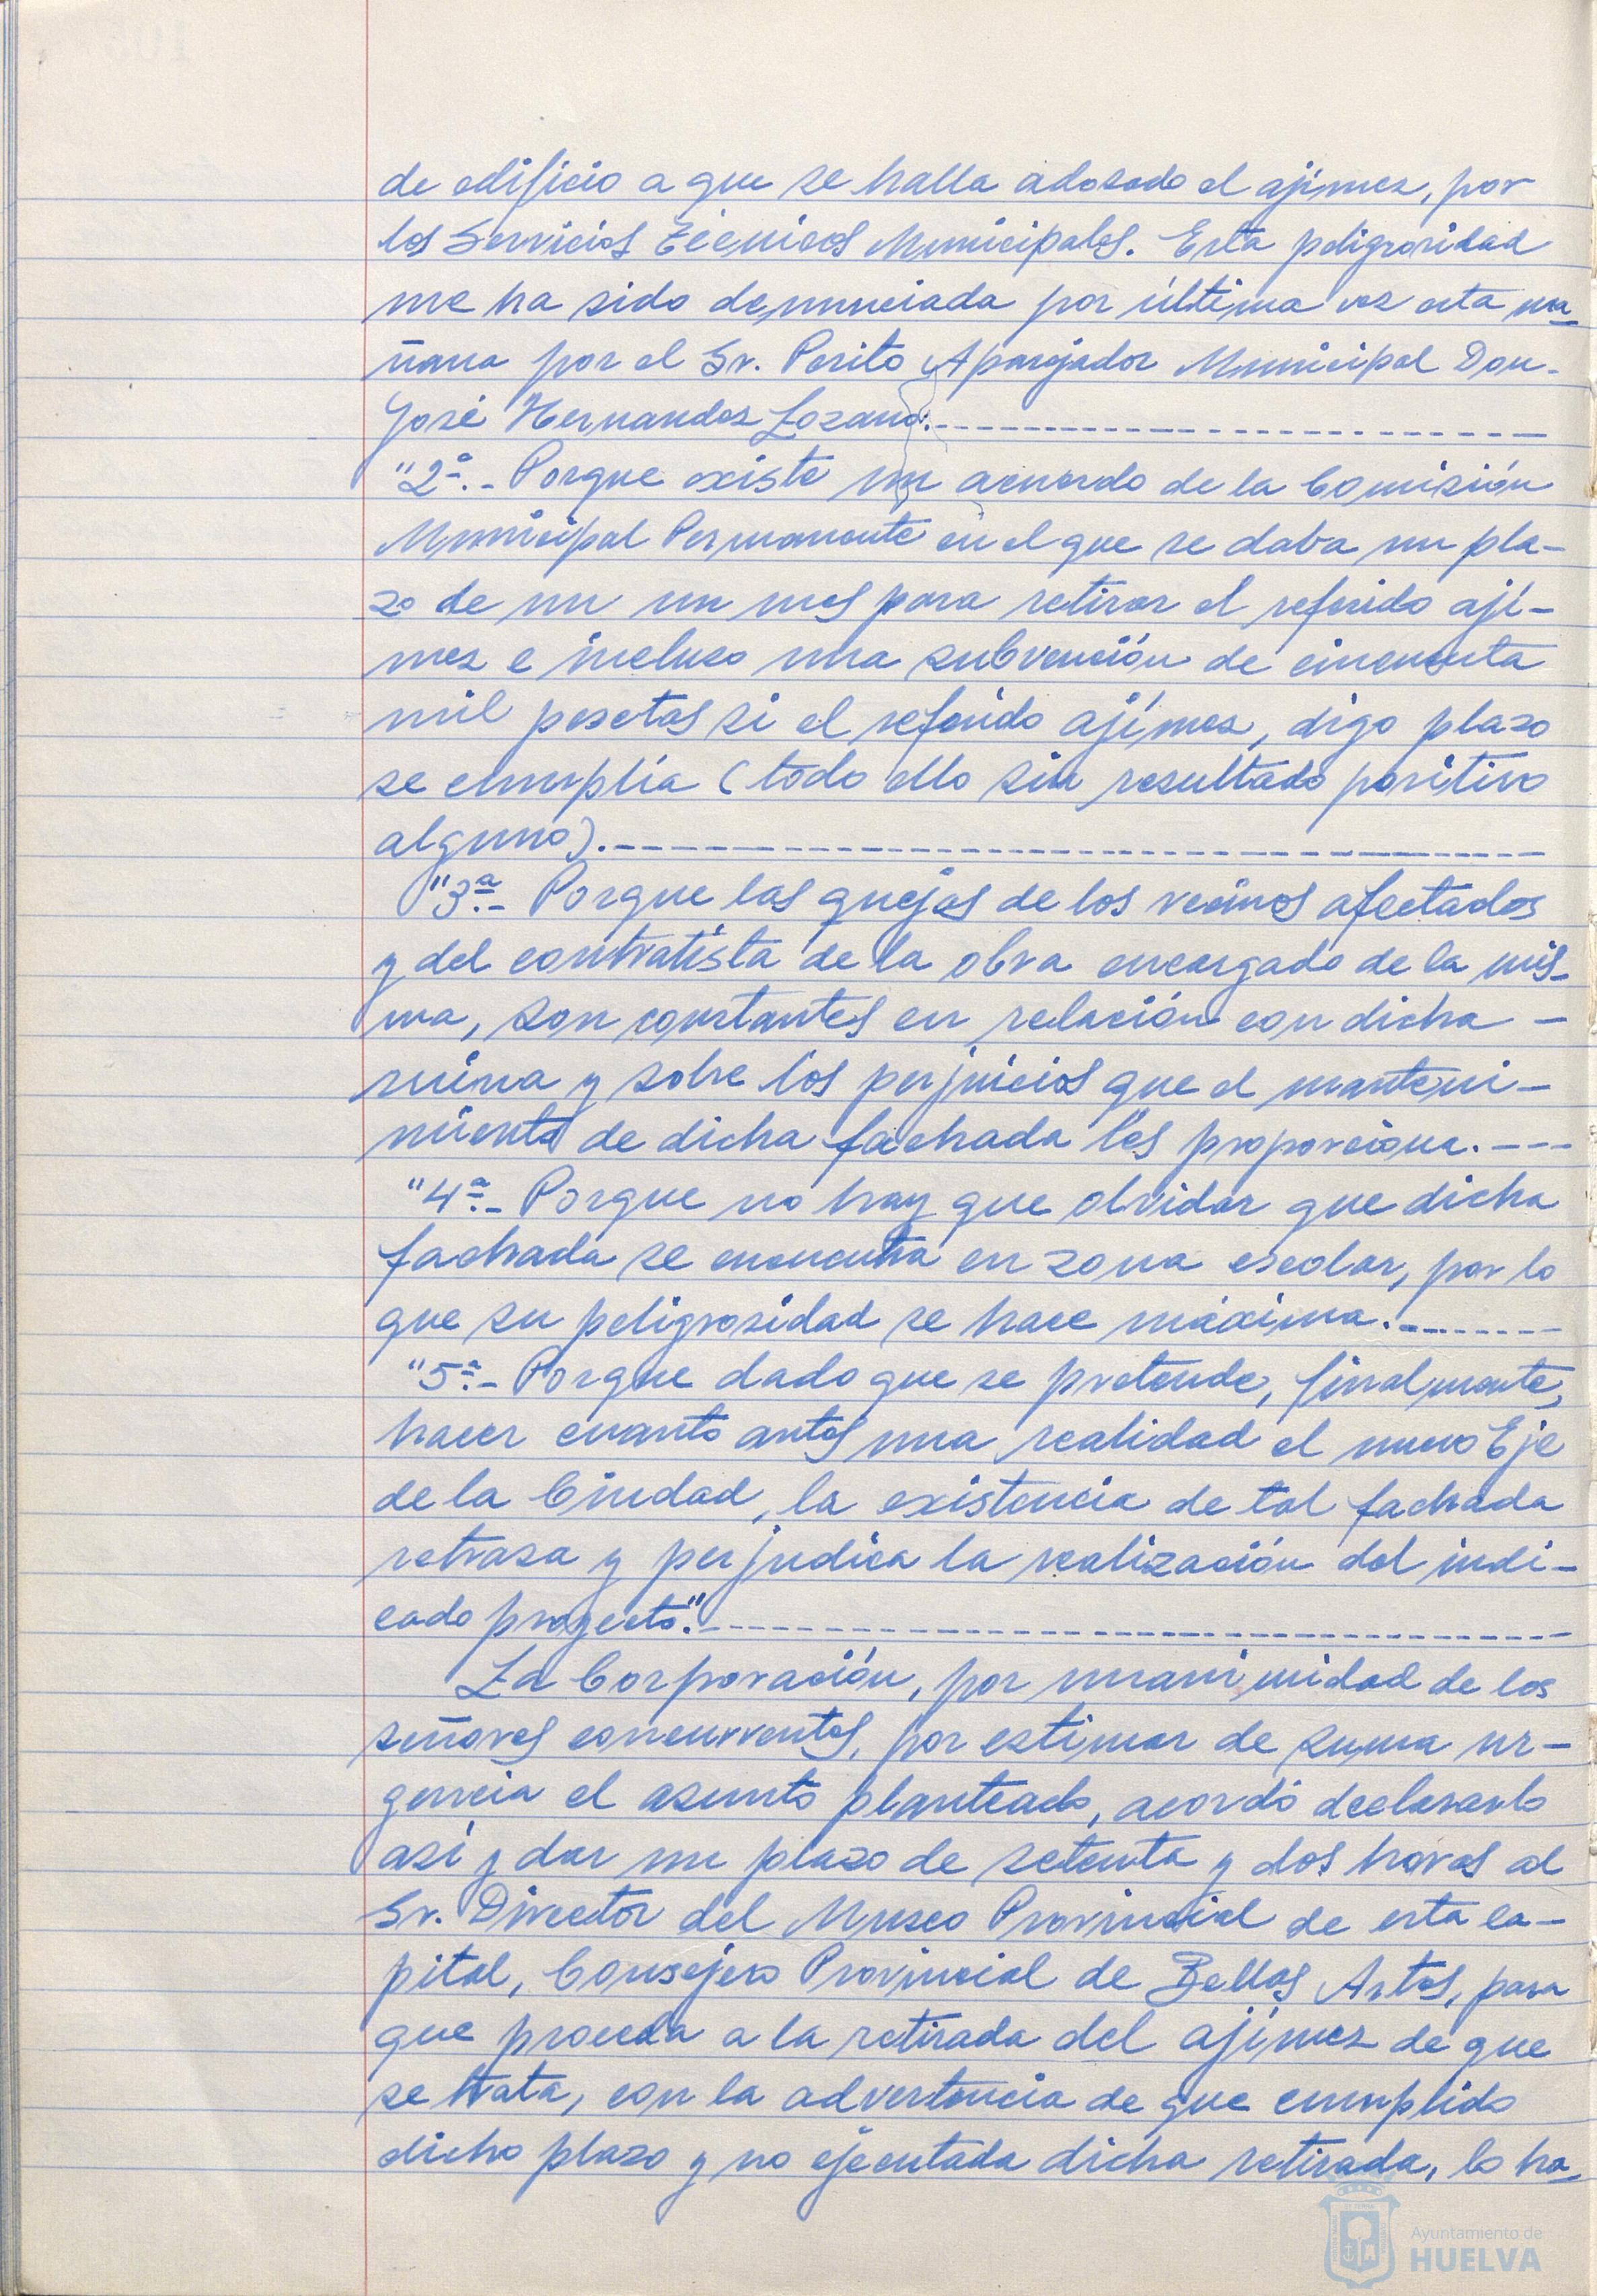 de edificio a que se halla adosado el ajimez, por
los Servicios Técnicos Municipales. Esta peligrosidad
me ha sido denunciada por última vez esta ma-
ñana por el Sr. Perito Aparejador Municipal Don-
José Hernandez Lozano.--------------------
"2ª.- Porque existe un acuerdo de la Comisión
Municipal Permanente en el que se daba un pla-
zo de un un mes para retirar el referido ají-
mez e incluso una subvención de cincuenta
mil pesetas si el referido ajímez, digo plazo
se cumplía (todo ello sin resultado positivo
alguno).--------------------
"3ª.- Porque las quejas de los vecinos afectados
y del contratista de la obra encargado de la mis-
ma, son constantes en relación con dicha -
ruina y sobre los perjuicios que el manteni-
miento de dicha fachada les proporciona.----
"4ª.- Porque no hay que olvidar que dicha
fachada se encuentra en zona escolar, por lo
que su peligrosidad se hace máxima.--------
"5ª.- Porque dado que se pretende, finalmente,
hacer cuanto antes una realidad el nuevo Eje
de la Ciudad, la existencia de tal fachada
retrasa y perjudica la realización del indi-
cado proyecto".--------------------
La Corporación, por unanimidad de los
señores concurrentes, por estimar de suma ur-
gencia el asunto planteado, acordó declararlo
así y dar un plazo de setenta y dos horas al
Sr. Director del Museo Provincial de esta ca-
pital, Consejero Provincial de Bellas Artes, para
que proceda a la retirada del ajímez de que
se trata, con la advertencia de que cumplido
dicho plazo y no ejecutada dicha retirada, lo ha-
Ayuntamiento de
HUELVA